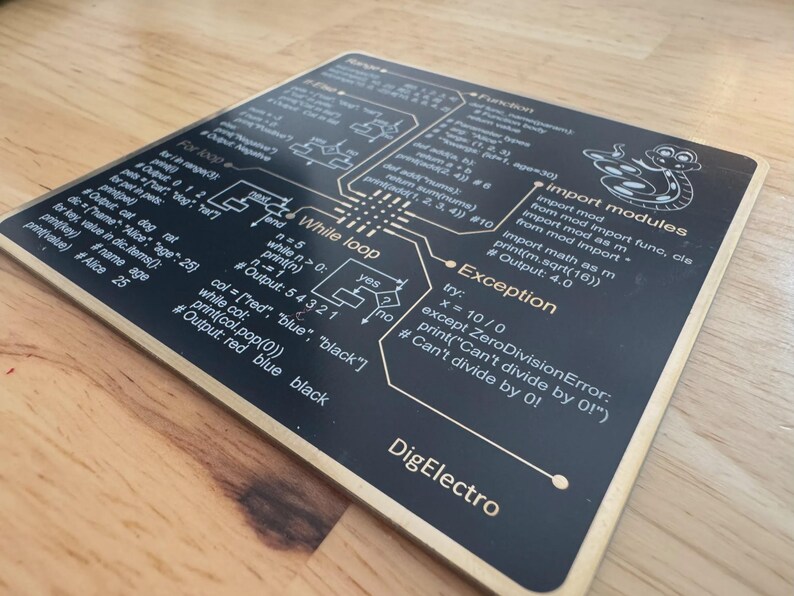 Range
If-Else
print("Positive")
print("Negative")
# Output: Negative
For loop
for i in range(3):
print(i)
# Output: 0 1 2
pets = ["cat", "dog", "rat"]
for pet in pets:
print(pet)
# Output: cat dog rat
dic = {"name": "Alice", "age": 25}
for key, value in dic.items():
print(key) # name age
print(value) # Alice 25
next
end
While loop
n = 5
while n > 0:
print(n)
n -= 1
# Output: 5 4 3 2 1
col = ["red", "blue", "black"]
while col:
print(col.pop(0))
# Output: red blue black
yes
?
no
Function
def func_name(param):
# Function body
return value
# Parameter types
# arg "Alice"
# *args (1, 2, 3)
# **kwargs (id=1, age=30)
def add(a, b):
return a + b
print(add(2, 4)) # 6
def add(*nums):
return sum(nums)
print(add(1, 2, 3, 4)) #10
Import modules
import mod
from mod import func, cls
import mod as m
from mod import *
import math as m
print(m.sqrt(16))
# Output: 4.0
Exception
try:
x = 10 / 0
except ZeroDivisionError:
print("Can't divide by 0!")
# Can't divide by 0!
DigElectro